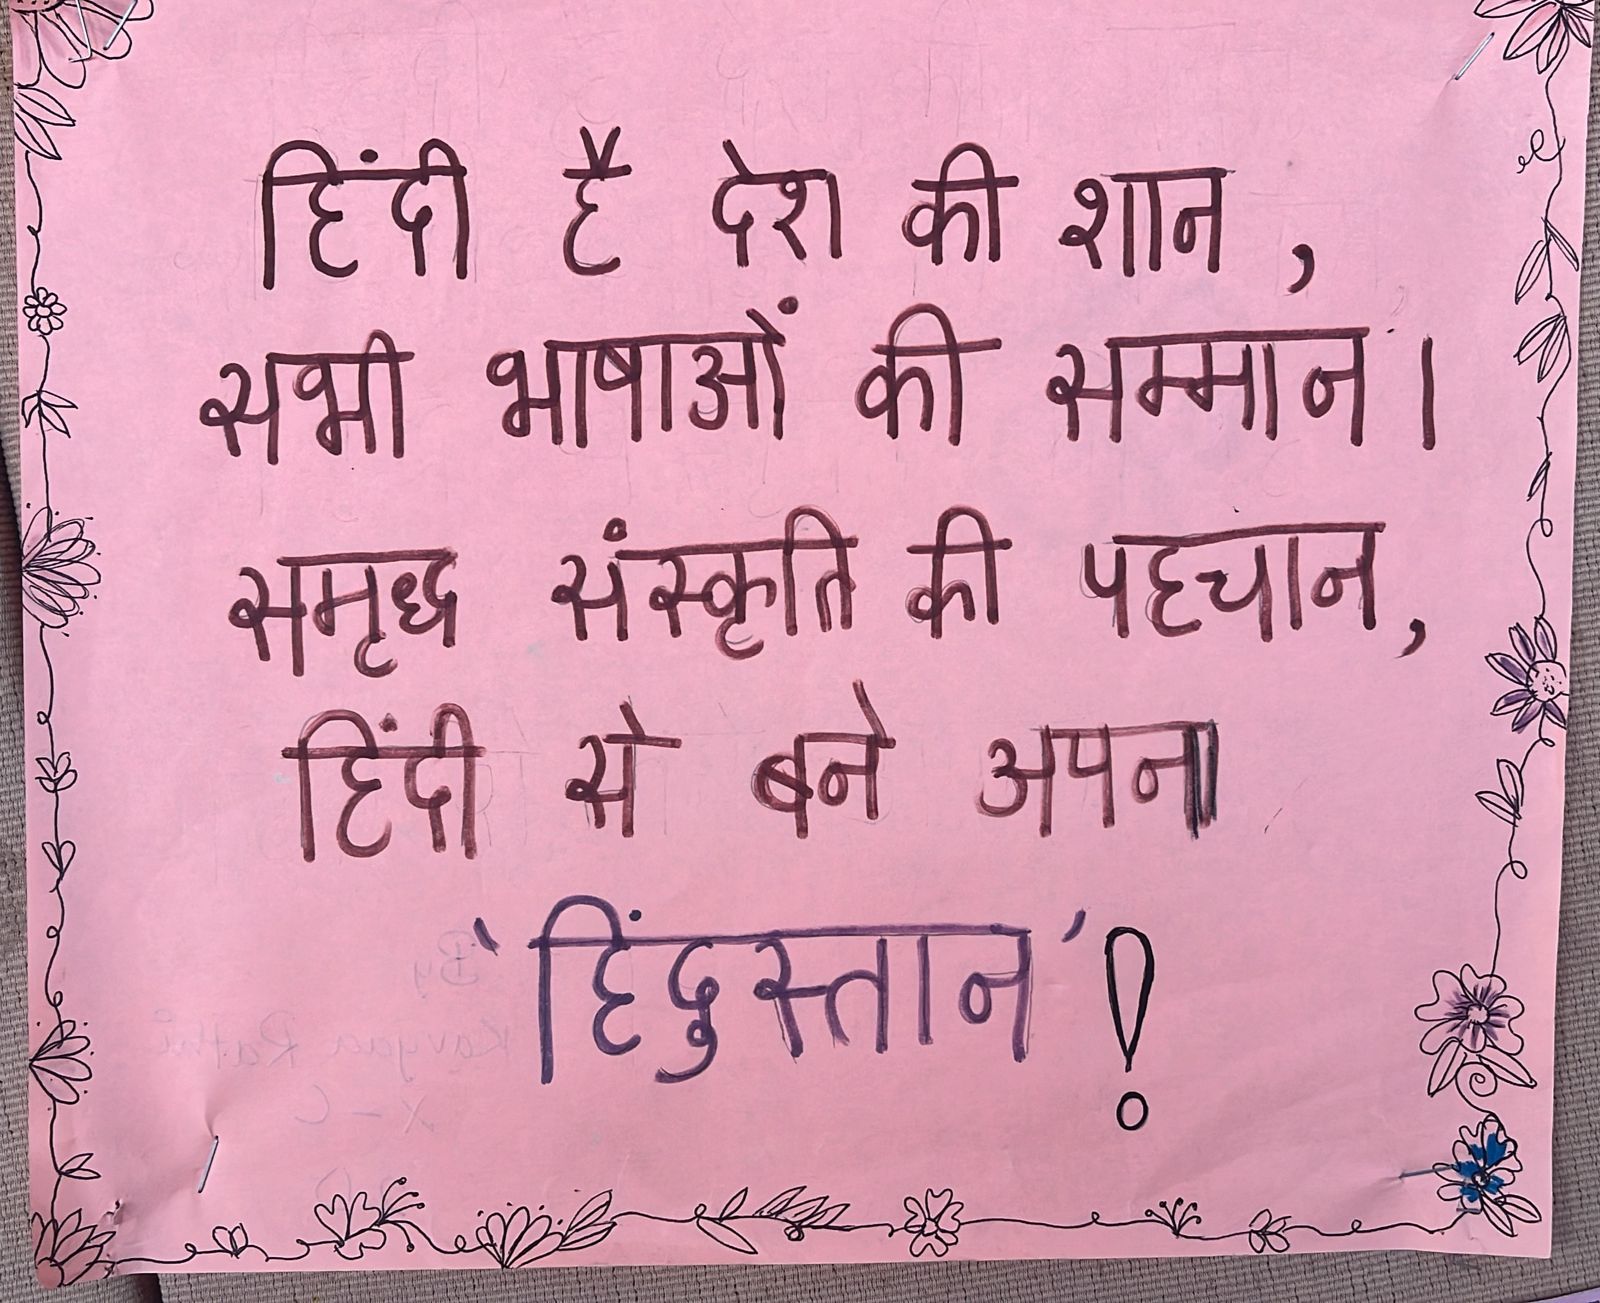 हिंदी है देश की शान ,
सभी भाषाओं की सम्मान ।
समृध्ध संस्कृति की पहचान,
हिंदी से बने अपना
'हिंदुस्तान' !
By
Kavyaa Rathi
X-C